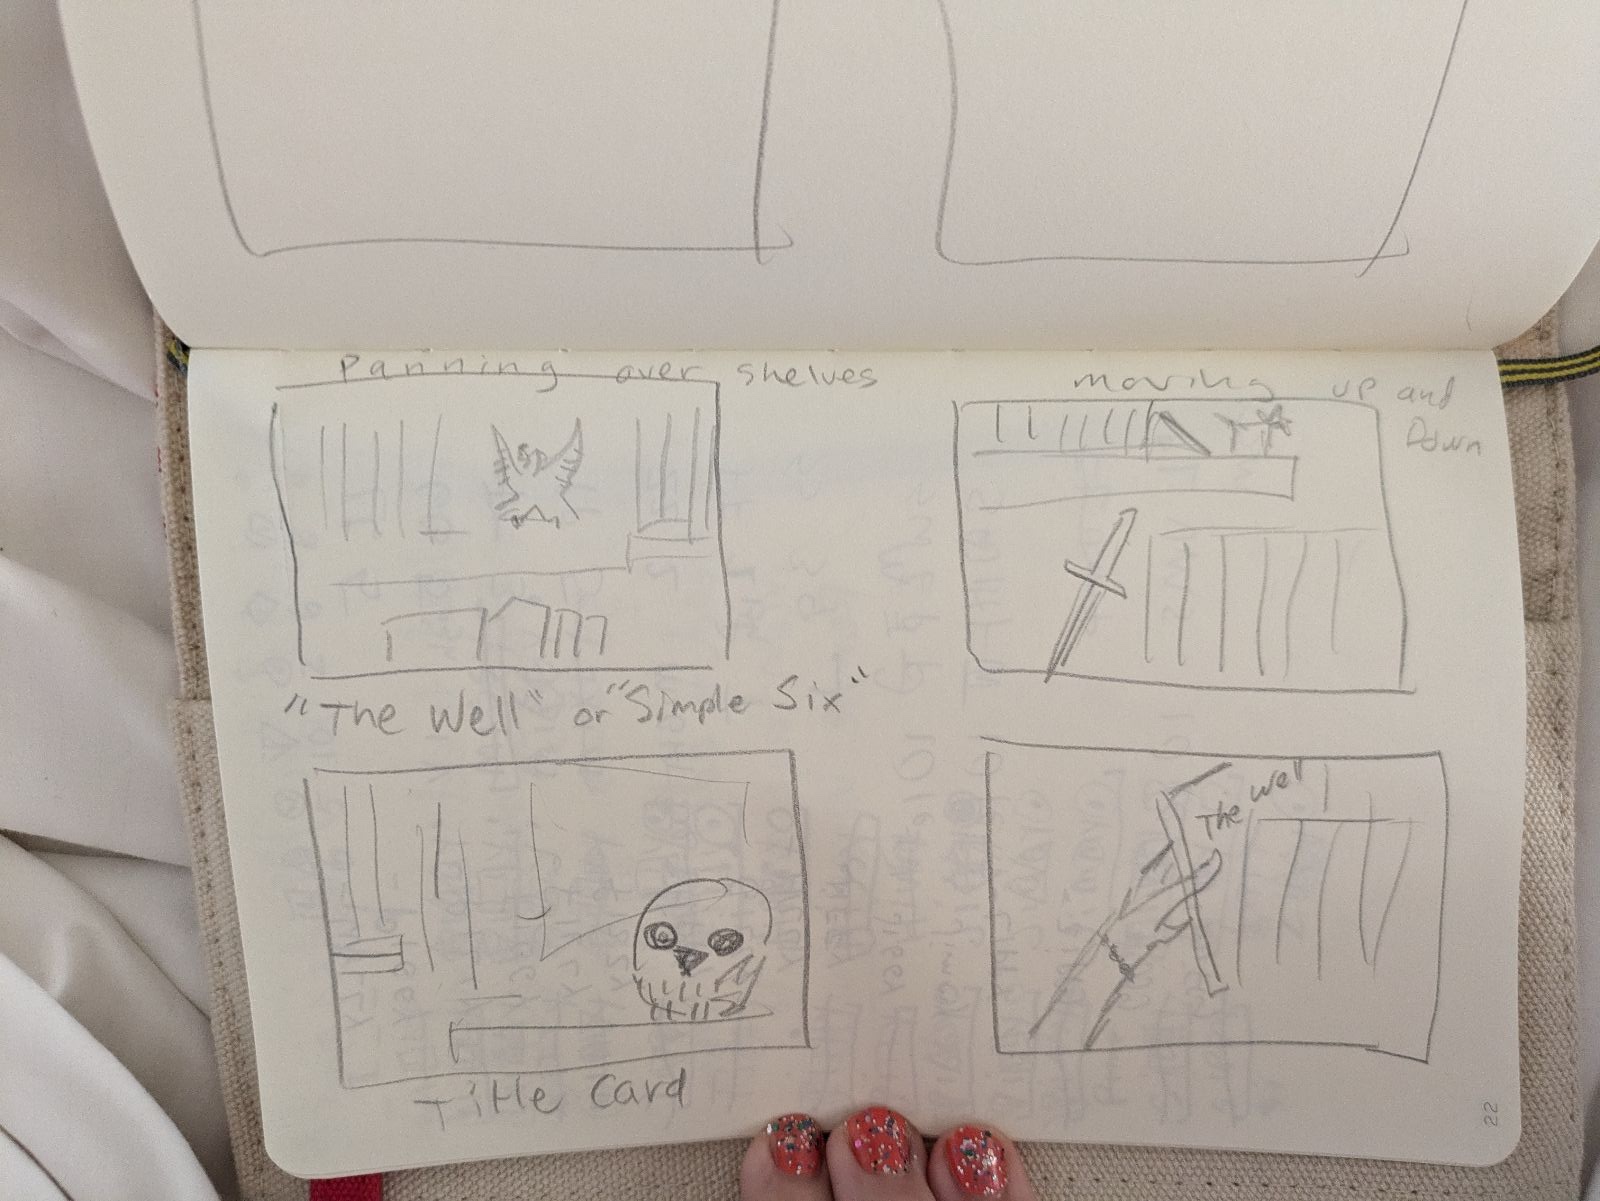 Panning over shelves
moving up and
Down
"The Well" or "Simple Six"
The Well
Title Card
22